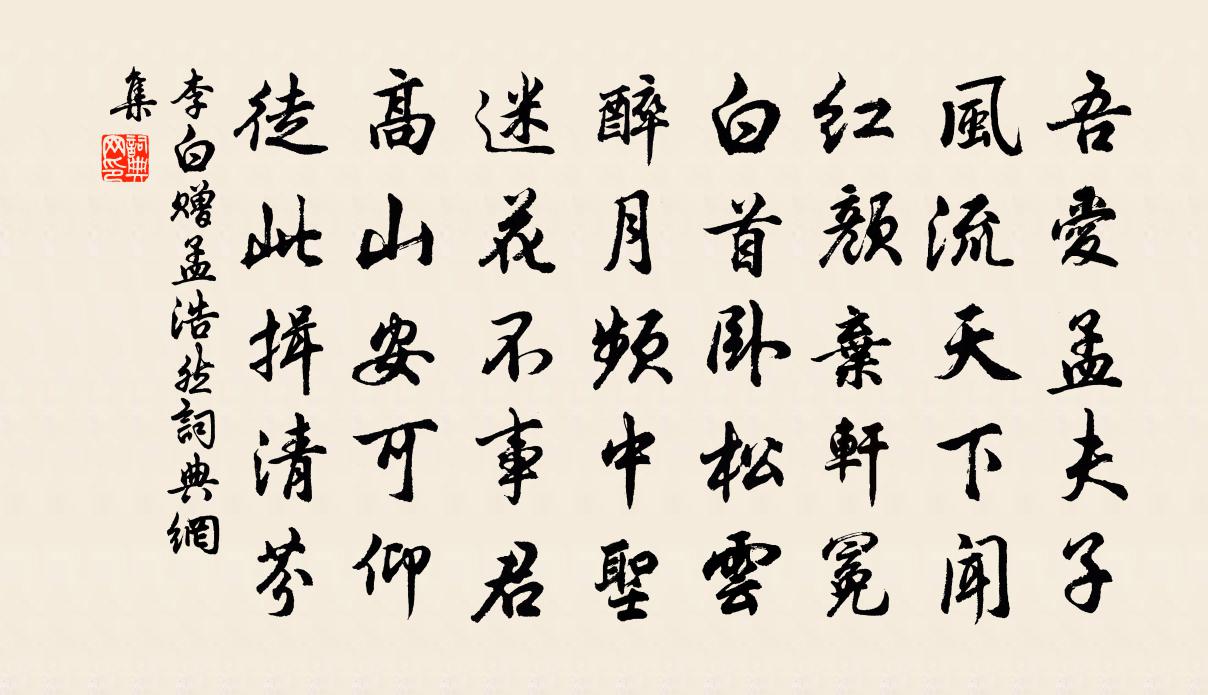 吾愛孟夫子
風流天下聞
紅顏棄軒冕
白首臥松雲
醉月頻中聖
迷花不事君
高山安可仰
徒此揖清芬
李白贈孟浩然詞典網
集
詞典網印